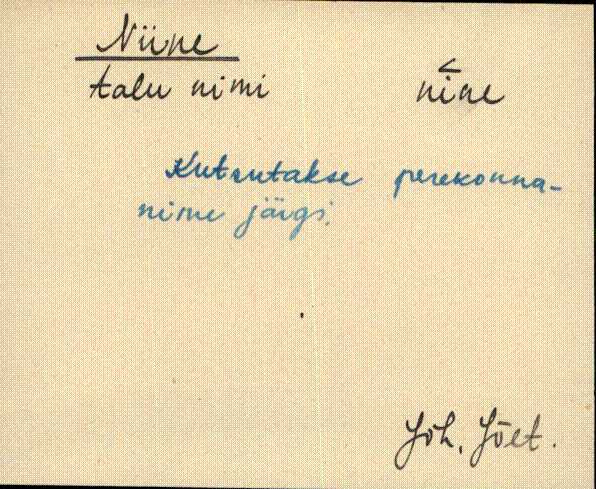 Niine
talu nimi
nine
Kutsutakse perekonna-
nime järgi.
Jõh, Jõet.